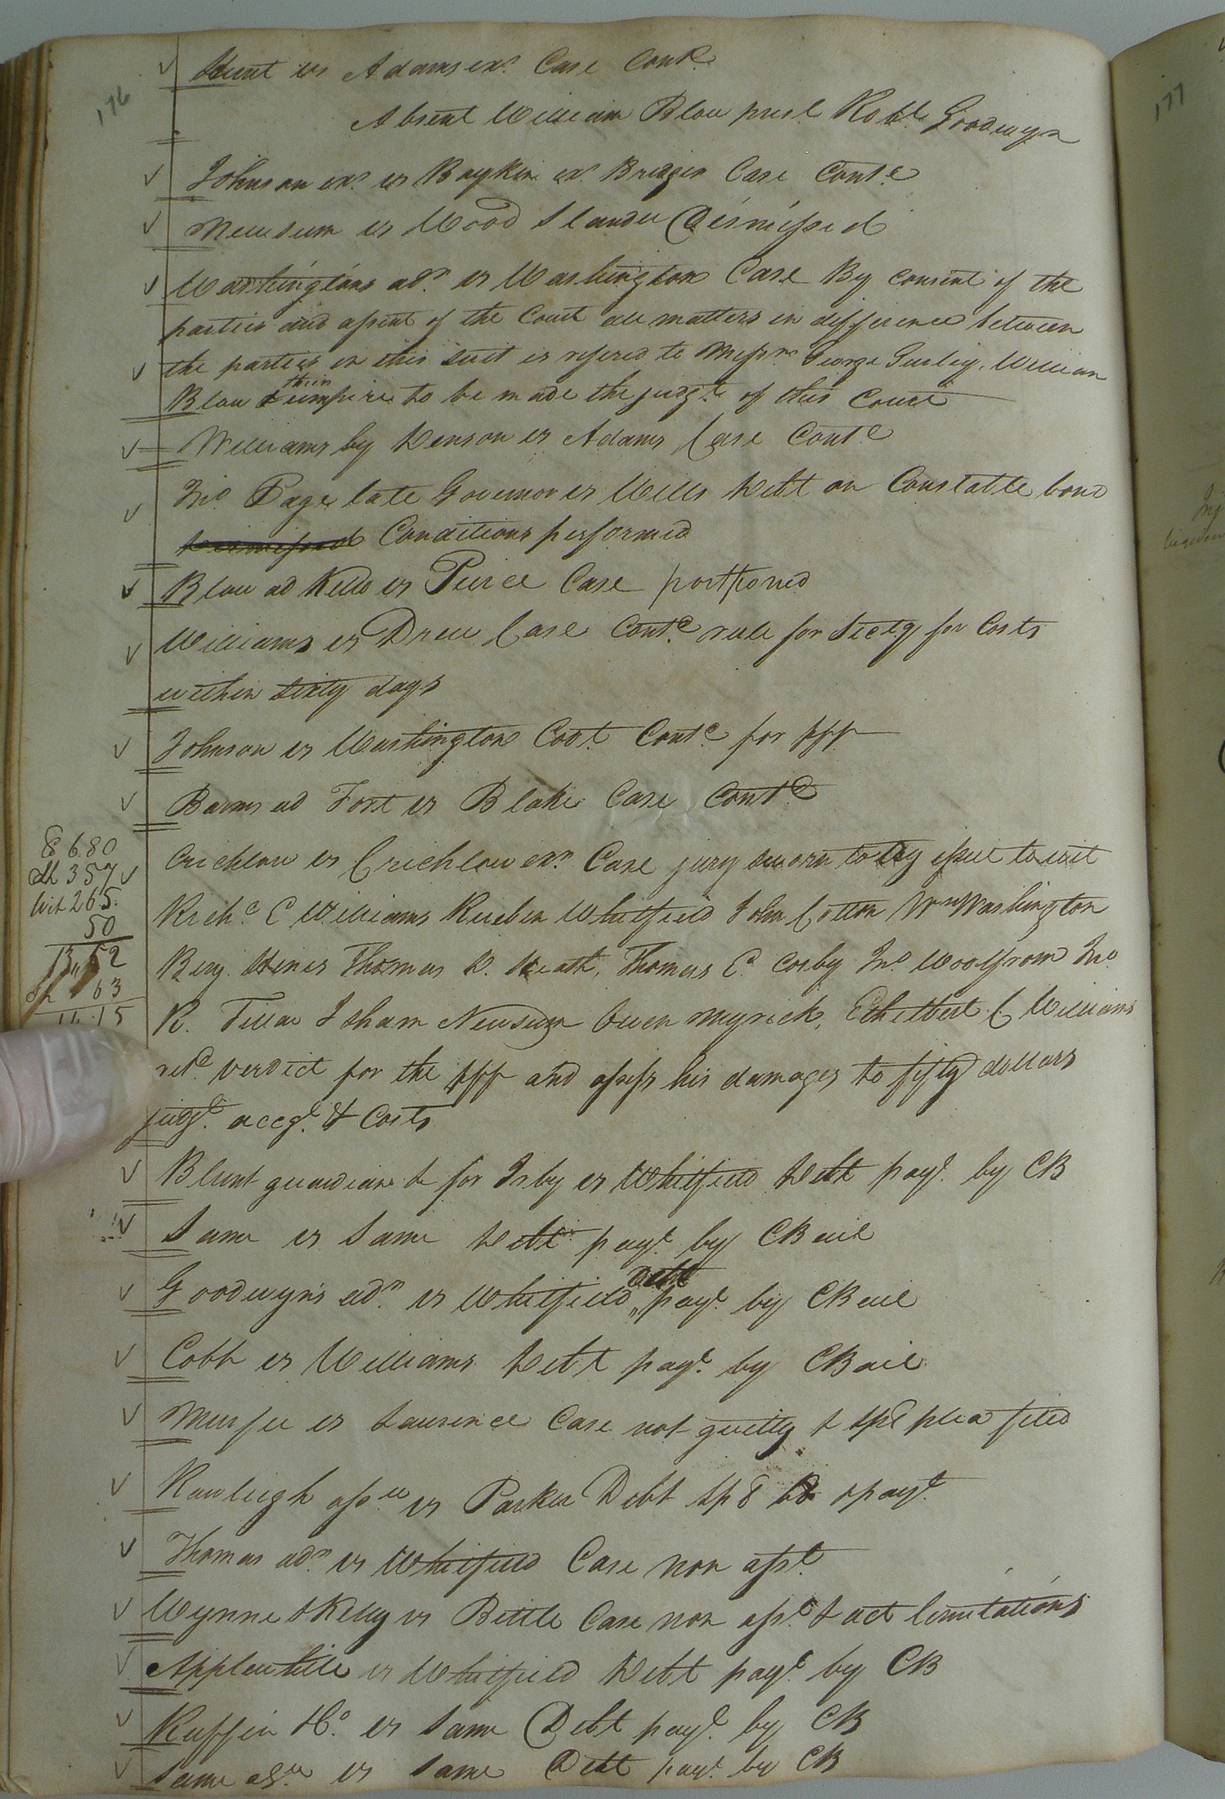 176
Hunt vs Adams exr. Case Contd.
Absent William Blow prest. Robt. Goodwyn
Johnson exr. vs Boykin exr. Bridges Case Contd.
Newsum vs Wood Slander Dismissed
Washingtons adr. vs Washington Case By consent of the
parties and assent of the Court all matters in difference between
the parties in this suit is refered to Messrs. George Gurley, William
Blow & their umpire to be made the judgt. of this Court
Williams by Henson vs Adams Case Contd.
Jno. Page late Governor vs Wells Debt on Constable bond
Dismissed Conditions performed
Blow ad Kello vs Peirce Case postponed
Williams vs Drew Case Contd. rule for Secty for Costs
within sixty days
Johnson vs Washington Covt. Contd. for plff
Barns ad Fort vs Blake Case Contd.
Crichlow vs Crichlow exr. Case jury sworn to try issue to wit
Richd. C Williams Rueben Whitfield John Cotton Wm Washington
Benj. Hines Thomas D. Heath, Thomas C. Cosby Jno. Woolfrom Jno.
R. Tillar Isham Newsum Owen Myrick, Ethelbert C Williams
retd. verdict for the plff and assess his damages to fifty dollars
judgt. accgt. & Costs
C 6.80
Att 357
Wit 265.
50
13,,52
63
14.15
Blunt guardian & for Irby vs Whitfield Debt payt. by CB
Same vs Same Debt payt. by CBail
Goodwyn's adr. vs Whitfield Debt payt. by CBail
Cobb vs Williams Debt payt. by CBail
Murfee vs Laurence Case not guilty & spl plea filed
Rawleigh assee vs Parker Debt spB opayt.
Thomas adr. vs Whitfield Case non asst.
Wynne & Kelly vs Bittle Case non asst. & act limitations
Applewhite vs Whitfield Debt payt. by CB
Ruffin &Co. vs Same Debt payt. by CB
Same assee vs Same Debt payt. by CB
177